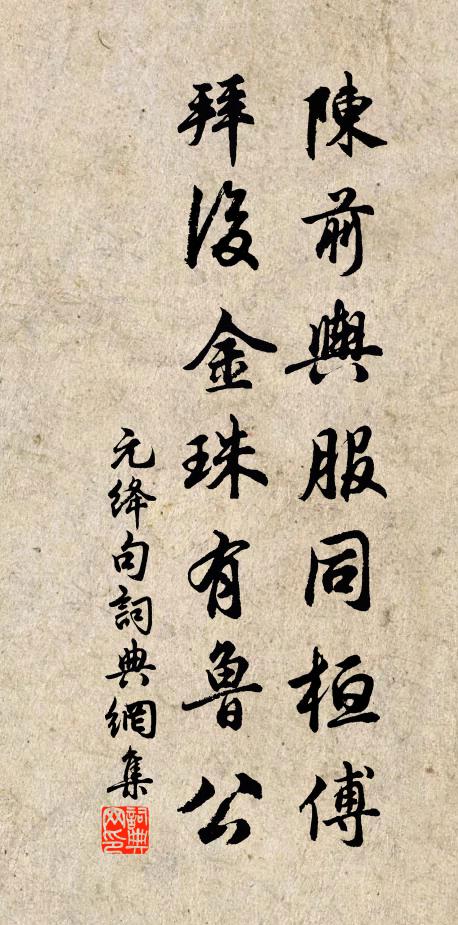 陳前輿服同桓傅
拜後金珠有魯公
元绛句詞典網集
詞典網印